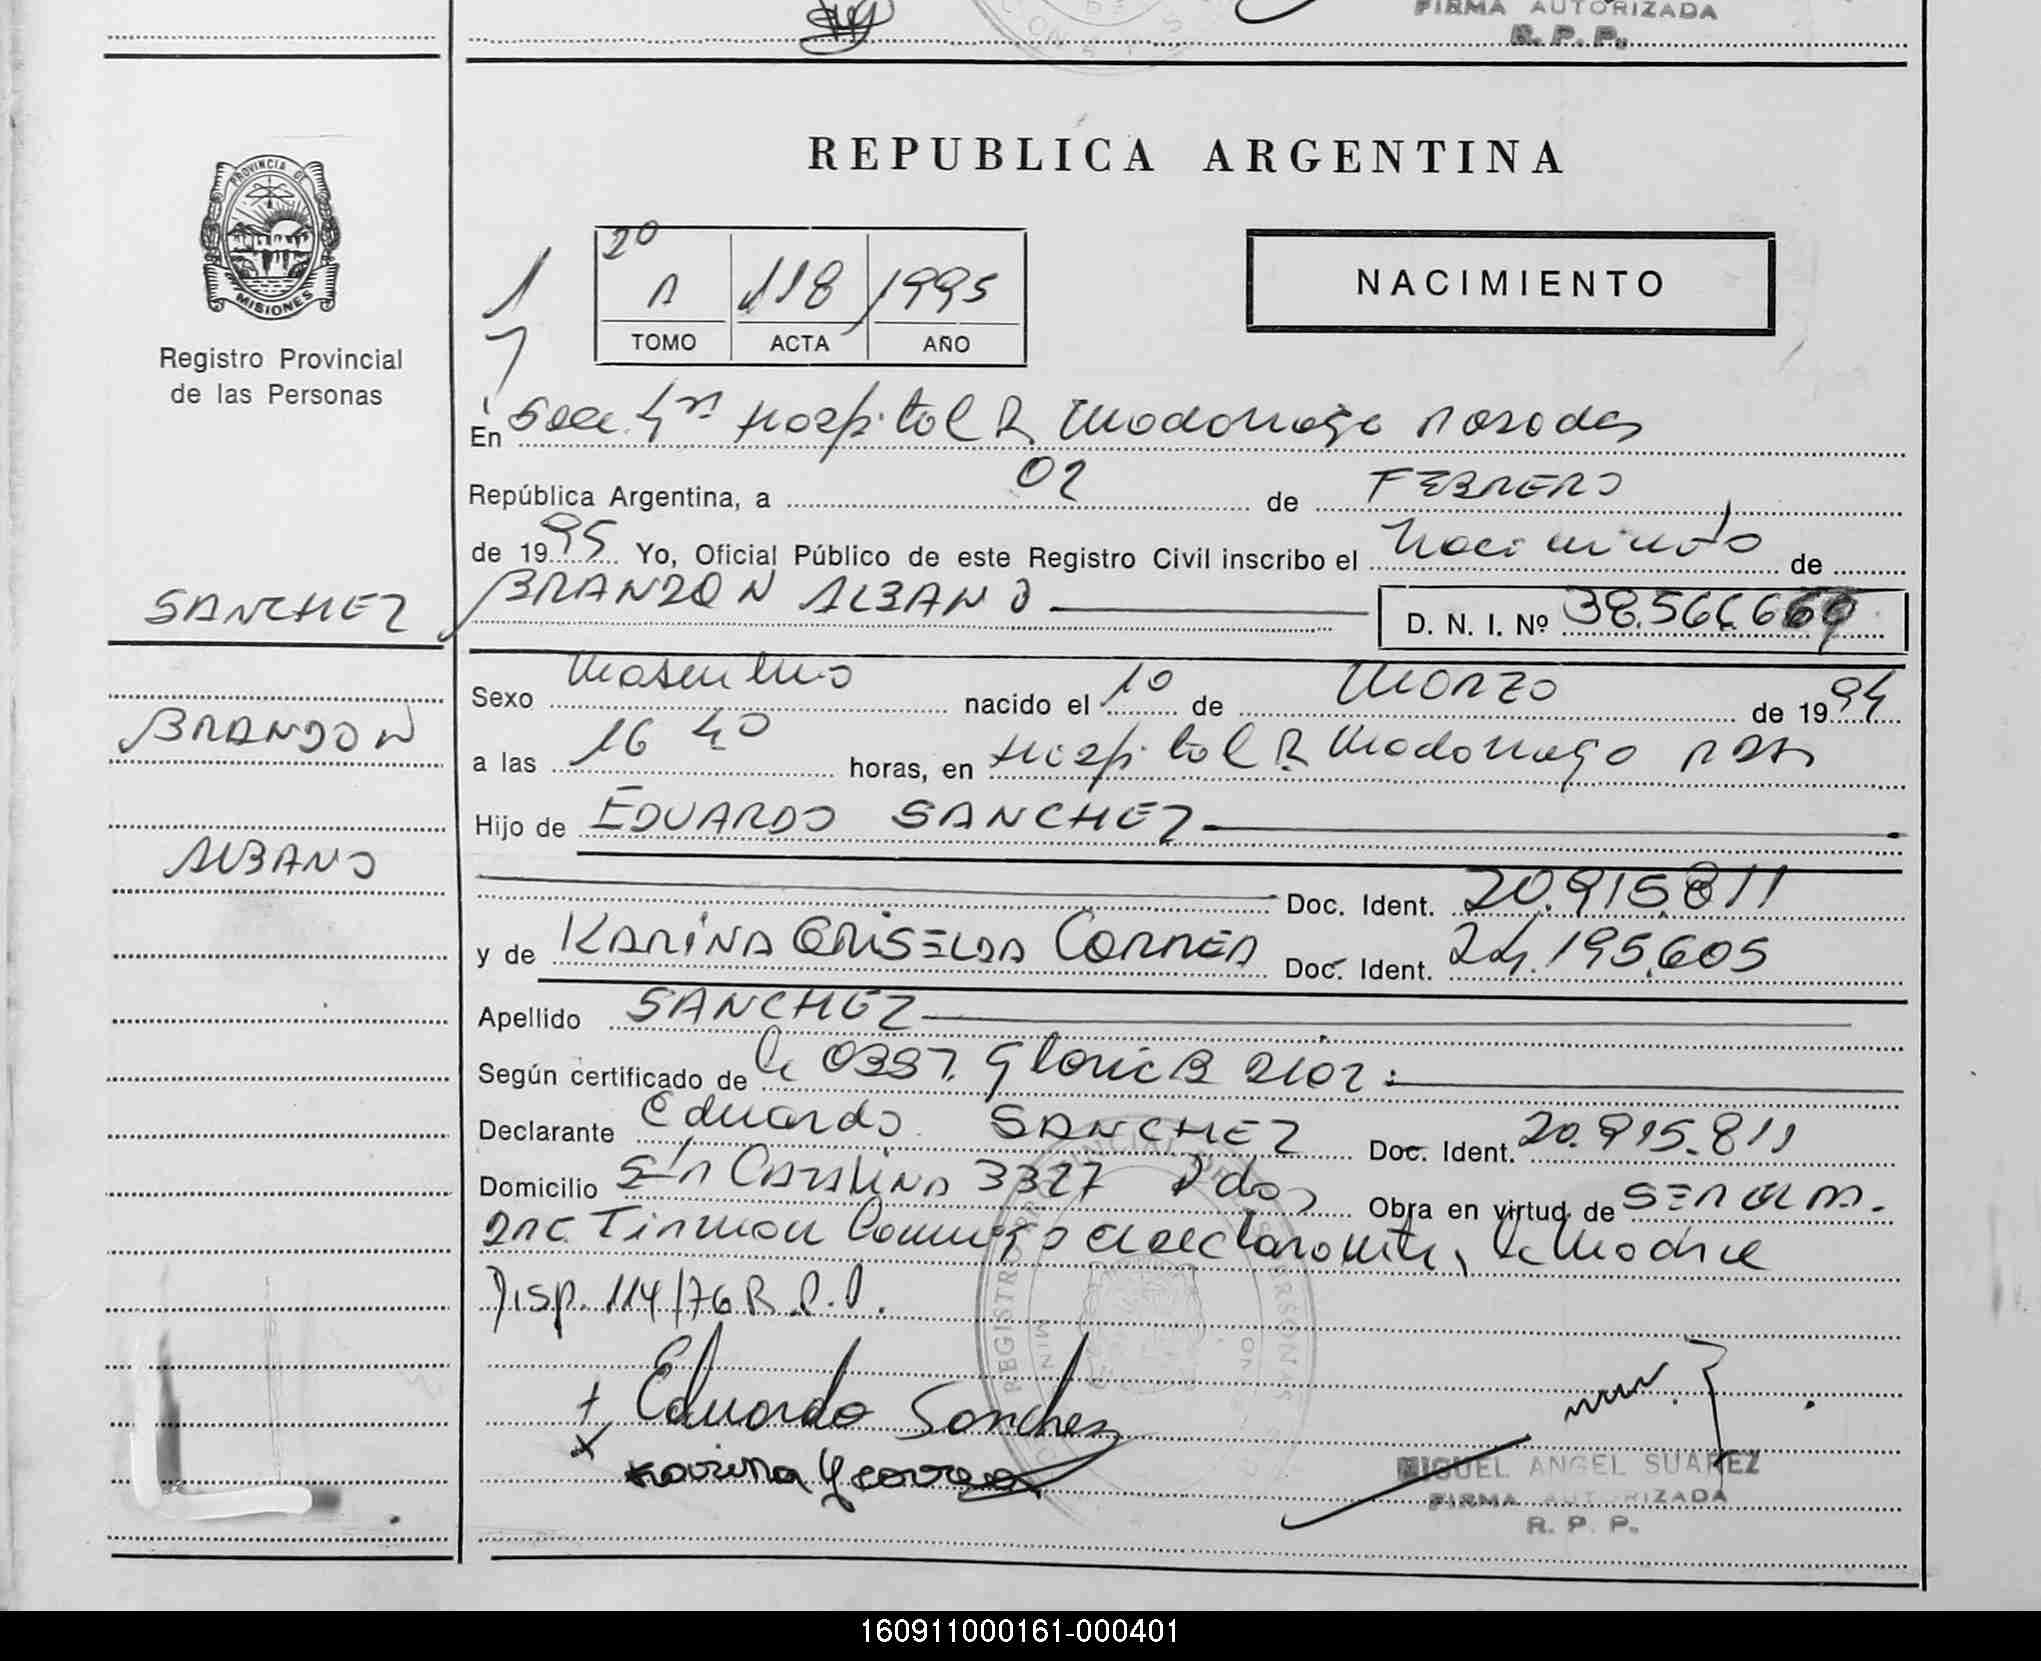 FIRMA AUTORIZADA
R. P. P.
REPUBLICA ARGENTINA
PROVINCIA DE
MISIONES
Registro Provincial
de las Personas
NACIMIENTO
2º
1 118 1995
TOMO ACTA AÑO
En Secc. 4ta Hospital R. Madariaga Posadas
República Argentina, a 02 de FEBRERO
de 1995 Yo, Oficial Público de este Registro Civil inscribo el Nacimiento de
SANCHEZ
BRANDON ALBANO D. N. I. Nº 38.566.669
Sexo Masculino nacido el 10 de Marzo de 1994
BRANDON
a las 16 40 horas, en Hospital R. Madariaga Pdas
Hijo de EDUARDO SANCHEZ
ALBANO
Doc. Ident. 20.915.811
y de KARINA GRISELDA CORREA Doc. Ident. 24.195.605
Apellido SANCHEZ
Según certificado de la Obst. Gloria B Diaz
Declarante Eduardo SANCHEZ Doc. Ident. 20.915.811
Domicilio Sta CATALINA 3327 Pdas Obra en virtud de SER EL PA-
DRE. Firman Conmigo el declarante, la Madre
Disp. 114/76 R.P.P.
Eduardo Sanchez
Karina G Correa
MIGUEL ANGEL SUAREZ
FIRMA AUTORIZADA
R. P. P.
160911000161-000401